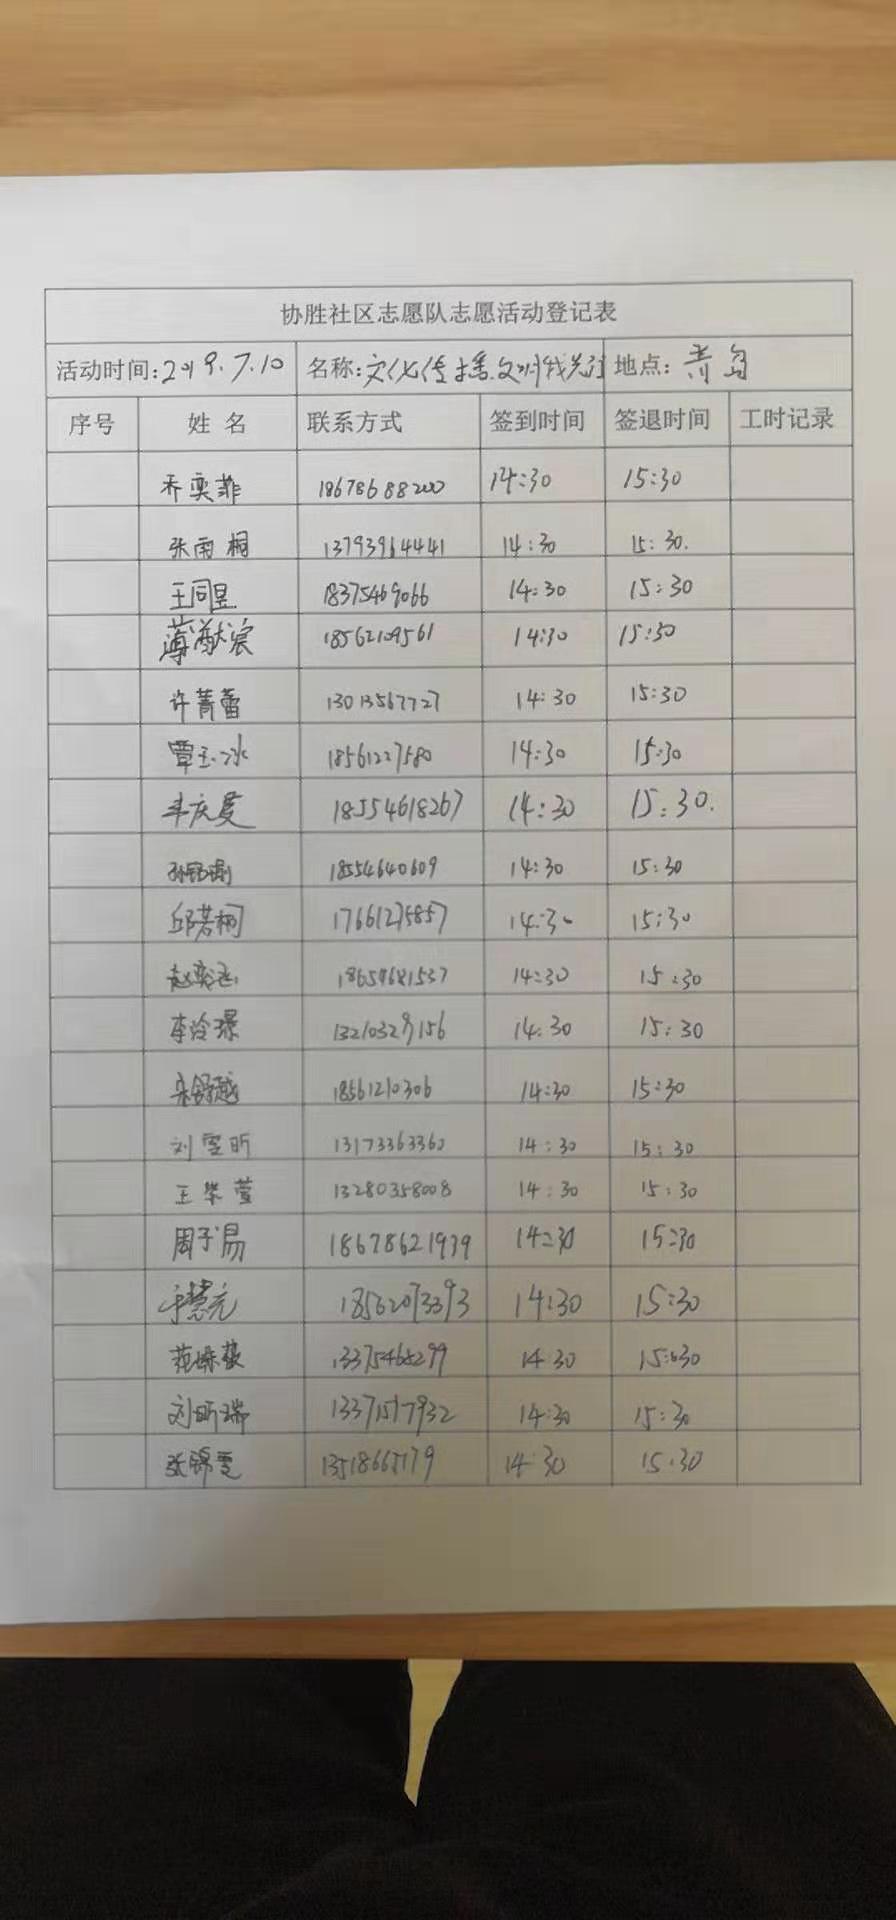 协胜社区志愿队志愿活动登记表
活动时间:2019.7.10 名称:文化传播.文明我先行 地点:青岛
序号 姓名 联系方式 签到时间 签退时间 工时记录
乔奕菲 18678688200 14:30 15:30
张雨桐 13793964441 14:30 15:30.
王同昱 18375469066 14:30 15:30
薄猷宸 18562109561 14:30 15:30
许菁蕾 13013567727 14:30 15:30
覃玉冰 18561227580 14:30 15:30
丰庆曼 18554618267 14:30 15:30.
18554640609 14:30 15:30
邱若桐 17661275857 14:30 15:30
18659681537 14:30 15:30
李泠璟 13210329156 14:30 15:30
宋舒越 18561210306 14:30 15:30
刘雯昕 13173363360 14:30 15:30
王紫萱 13280358008 14:30 15:30
周子易 18678621939 14:30 15:30
于慧元 18562073393 14:30 15:30
13375465299 14:30 15:30
刘昕瑞 13371517932 14:30 15:30
张锦雯 13518665179 14:30 15:30